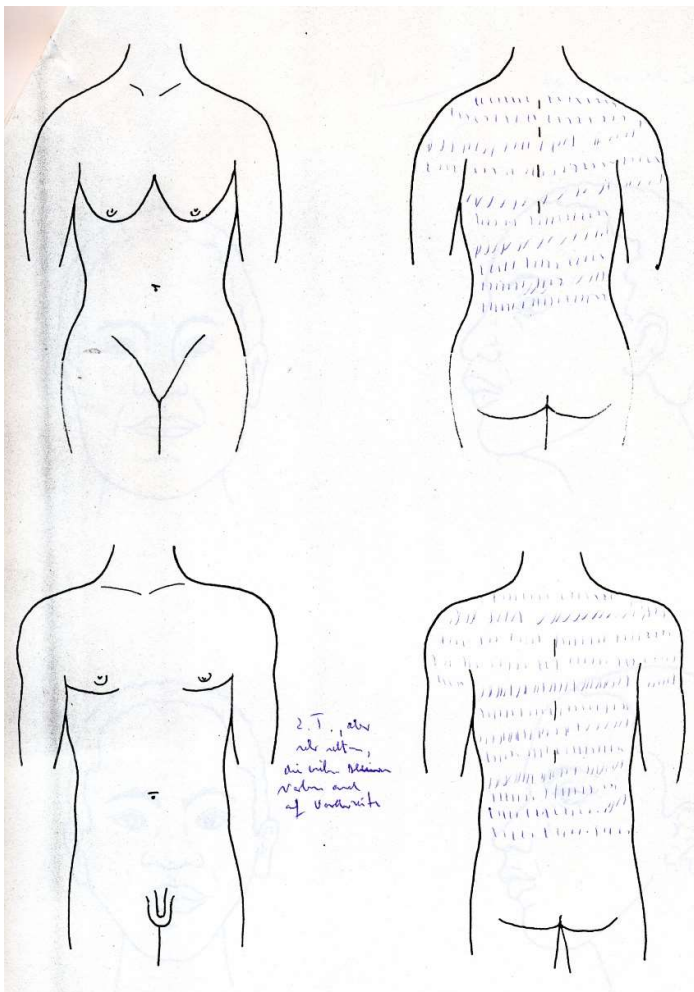 z. T., aber
sehr selten,
die vielen kleinen
Narben auch
auf Vorderseite